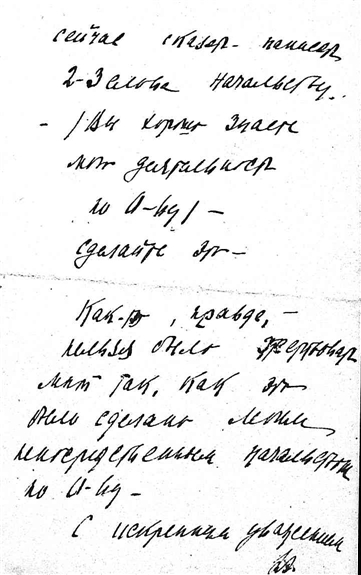 сейчас сказать – написать
2–3 слова начальству.
– /Вы хорошо знаете
мою деятельность
по А–ву/ –
сделайте это –
Как–то, правда, –
нельзя было жертвовать
мной так, как это
было сделано моим
непосредственным начальством
по А–ву –
С искренним уважением